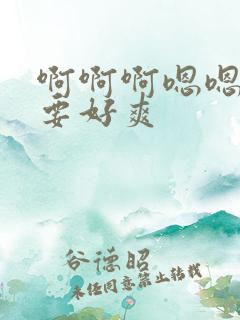 啊啊啊嗯嗯
要好爽
谷德昭
未经同意禁止转载